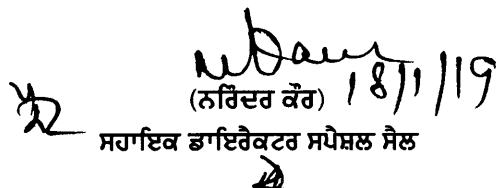 18/1/19
(ਨਰਿੰਦਰ ਕੌਰ)
ਸਹਾਇਕ ਡਾਇਰੈਕਟਰ ਸਪੈਸ਼ਲ ਸੈਲ